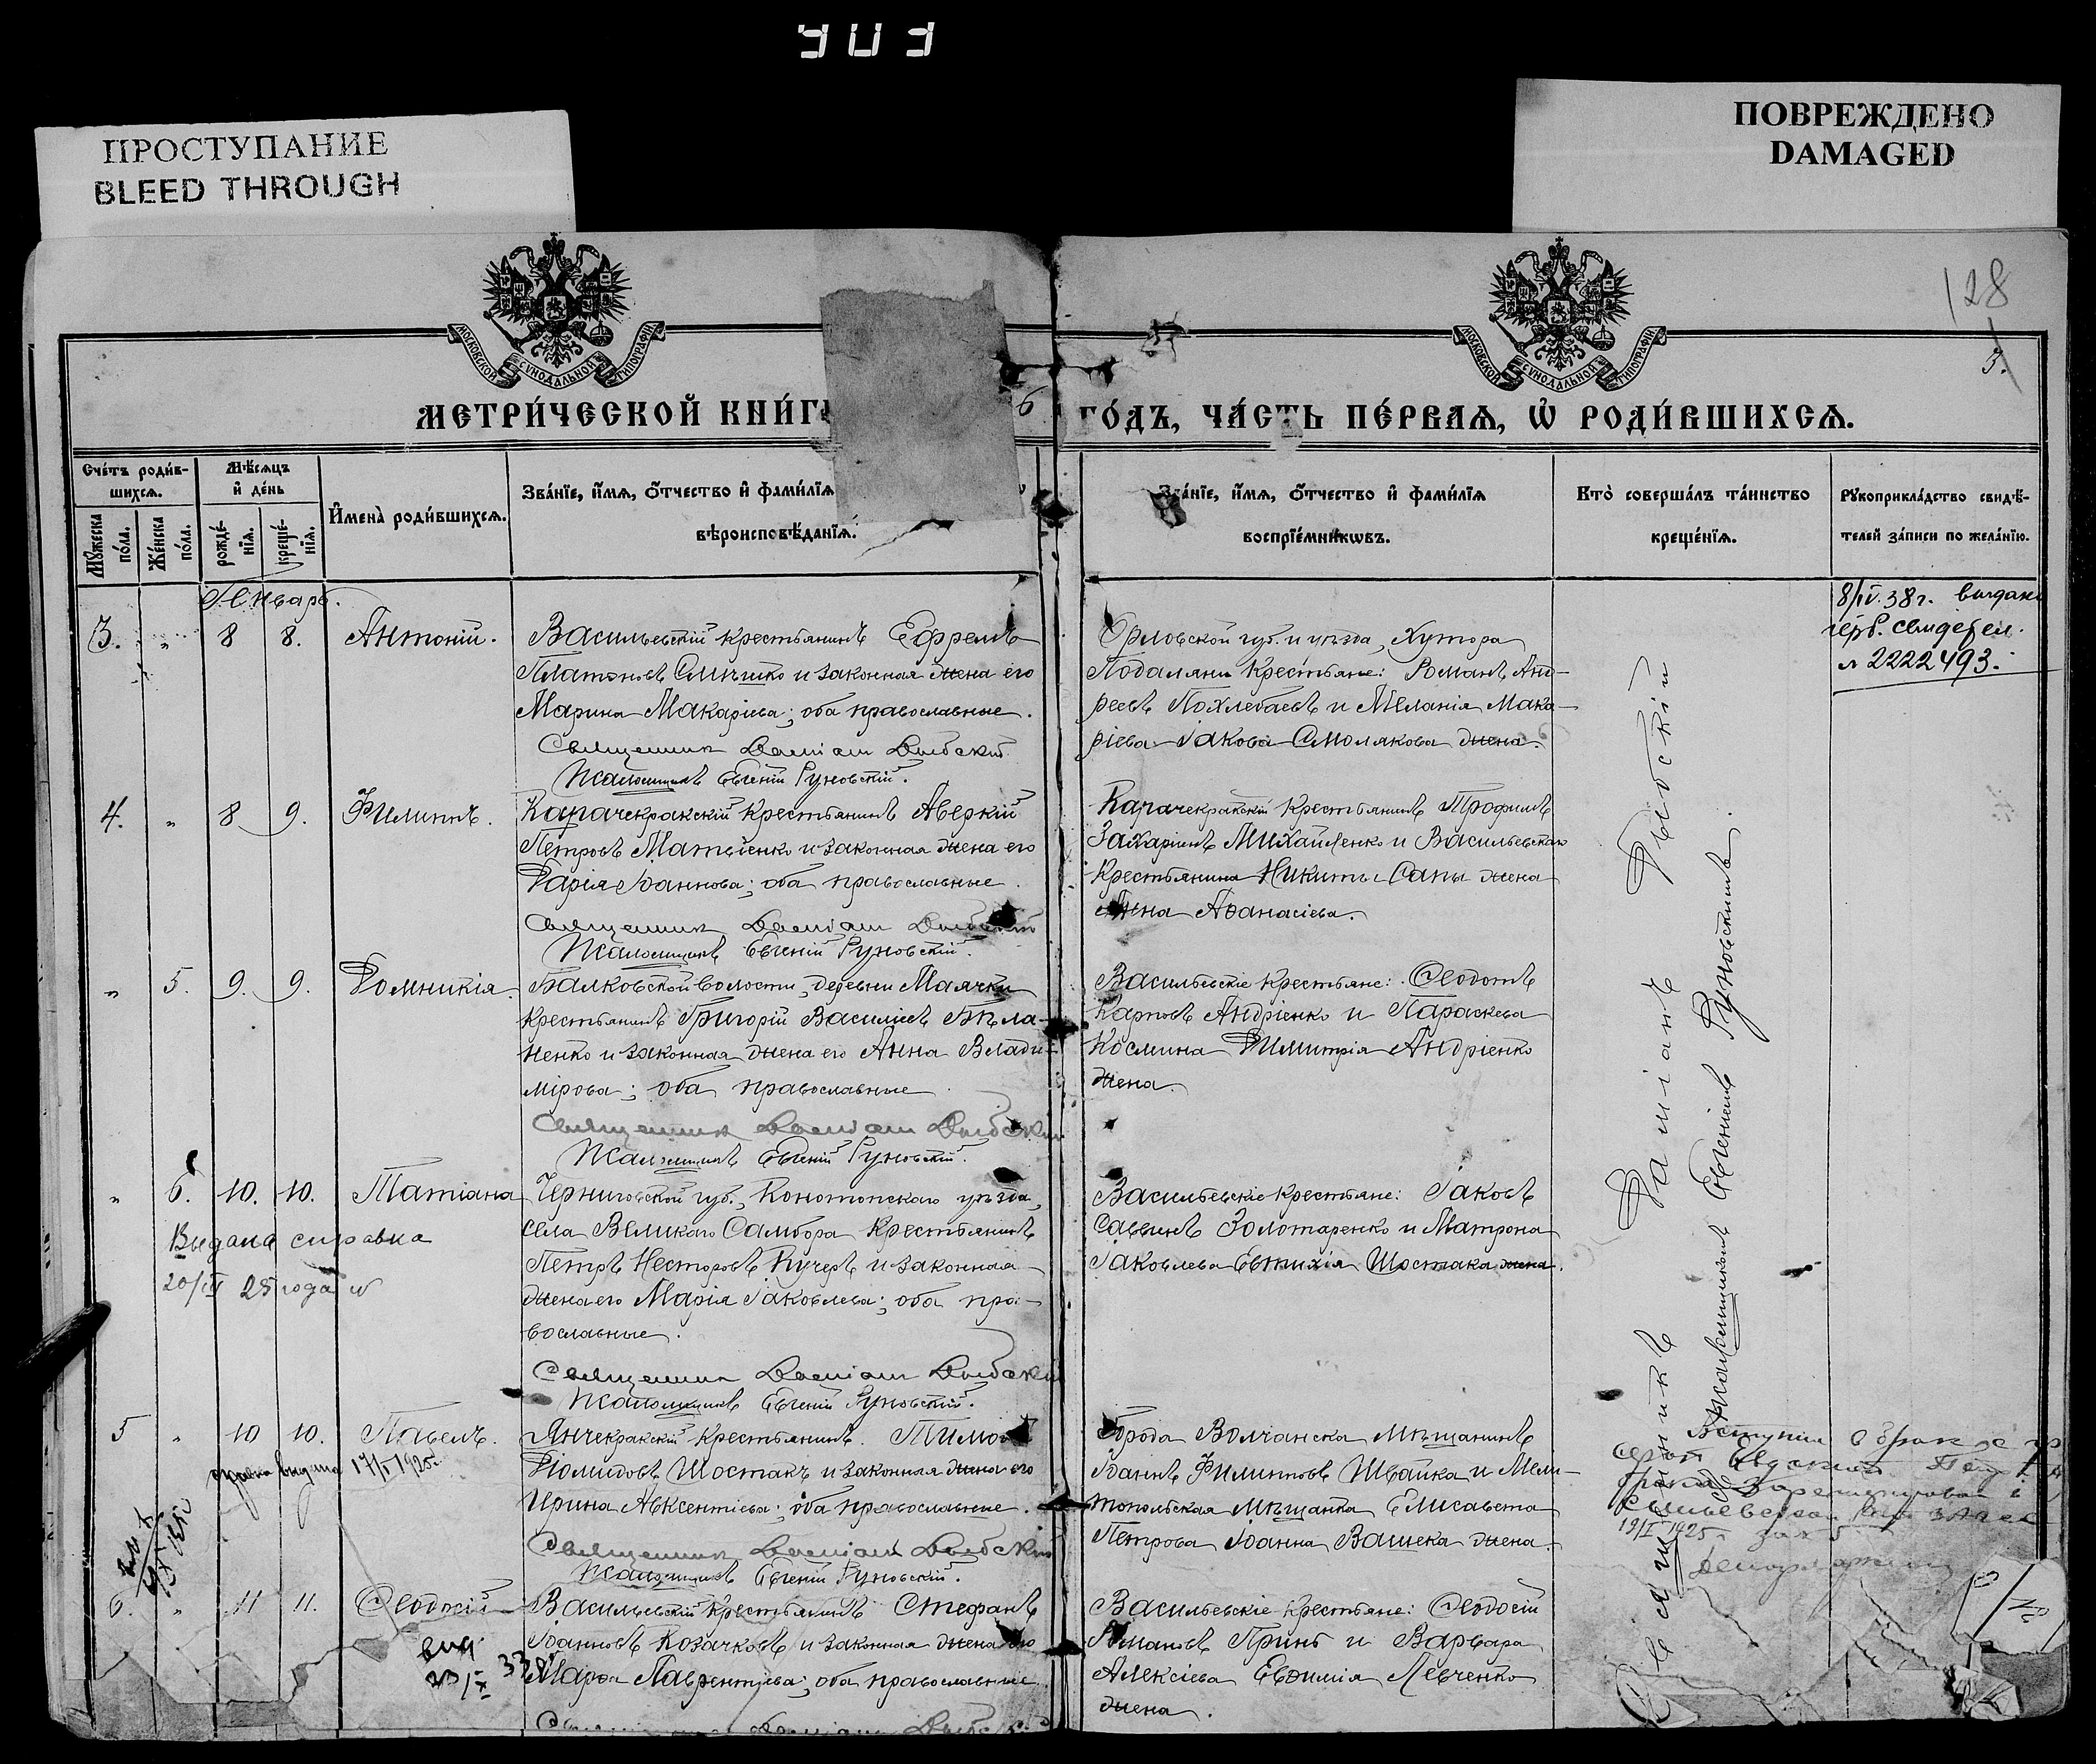 ПРОСТУПАНИЕ
BLEED THROUGH
ПОВРЕЖДЕНО
DAMAGED
128
3.
МОСКОВСКОЙ СѴНОДАЛЬНОЙ ТИПОГРАФІИ
МОСКОВСКОЙ СѴНОДАЛЬНОЙ ТИПОГРАФІИ
МЕТРИ́ЧЕСКОЙ КНИ́Г
6 ГО́ДЪ, ЧА́СТЬ ПЕ́РВАѦ, Ѽ РОДИ́ВШИХСѦ.
Сче́тъ роди́в-
шихсѧ.
Мꙋ́жеска по́ла.
Же́нска по́ла.
Мѣ́сѧцъ и҆ де́нь
рожде́-нїѧ.
креще́-нїѧ.
И҆мена̀ роди́вшихсѧ.
Зва́нїе, и҆́мѧ, ѻ҆́тчество и҆ фами́лїѧ
вѣроисповѣ́данїѧ.
Зва́нїе, и҆́мѧ, ѻ҆́тчество и҆ фами́лїѧ
воспрїе́мникѡвъ.
Кто̀ соверша́лъ та́инство
креще́нїѧ.
Рꙋкоприкла́дство свидѣ́-
телей за́писи по жела́нїю.
Январь.
3. " 8 8. Антоній.
Васильевскій крестьянинъ Ефремъ
Платоновъ и законная жена его
Марина Макаріева; оба православные.
Священник Дамиан Дыбский
Псаломщикъ Евгеній Руновскій.
Орловской губ. и уѣзда, Хутора
Подаляни крестьяне: Романъ Анд-
реевъ Похлебаевъ и Меланія Мака-
ріева Іакова Смолякова жена.
8/IV.38 г. выдано
герб. свидетел.
№ 2222493.
4. " 8 9. Филиппъ.
Карачекракскій крестьянинъ Аверкій
Петровъ Матвіенко и законная жена его
Дарія Іоаннова; оба православные.
Священник Дамиан Дыбский
Псаломщикъ Евгеній Руновскій.
Карачекракскій крестьянинъ Трофимъ
Захаріинъ Михайленко и Васильевскаго
крестьянина Никиты Сапы жена
Анна Аѳанасіева.
" 5. 9. 9. Домникія.
Балковской волости, деревни Маячки
крестьянинъ Григорій Василіевъ Бѣла-
ненко и законная жена его Анна Влади-
мірова; оба православные
Священник Дамиан Дыбский
Псаломщикъ Евгеній Руновскій.
Васильевскіе крестьяне: Ѳеодотъ
Карповъ Андріенко и Параскева
Космина Димитрія Андріенко
жена.
" 6. 10. 10. Татіана
Выдана справка
20/IV 25 года
Черниговской губ., Конотопскаго уѣзда,
села Великаго Самбора крестьянинъ
Петръ Несторовъ Кучеръ и законная
жена его Марія Іаковлева; оба пра-
вославные.
Священник Дамиан Дыбский
Псаломщикъ Евгеній Руновскій.
Васильевскіе крестьяне: Іаковъ
Саввинъ Золотаренко и Матрона
Іаковлева Евтихія Шостака жена.
5 " 10 10. Павелъ.
справка выдана 17/I 1925
Янчекракскій крестьянинъ
Діомидовъ Шостакъ и законная жена его
Ирина Авксентіева; оба православные.
Священник Дамиан Дыбский
Псаломщикъ Евгеній Руновскій.
Города Волчанска мѣщанинъ
Іоаннъ Филипповъ Швайка и Мели-
топольская мѣщанка Елисавета
Петрова Іоанна Вашека жена.
Вступил в брак с
19/I 1925
6. " 11 11. Ѳеодосій
выд
23/X 33
Васильевскій крестьянинъ Стефанъ
Іоанновъ Козачковъ и законная жена его
Марѳа Лаврентіева; оба православные
Васильевскіе крестьяне: Ѳеодосій
Романовъ Принь и Варвара
Алексіева Евѳимія Левченко
жена.
Священникъ Даміанъ Дыбскій
съ Псаломщикомъ Евгеніемъ Руновскимъ.